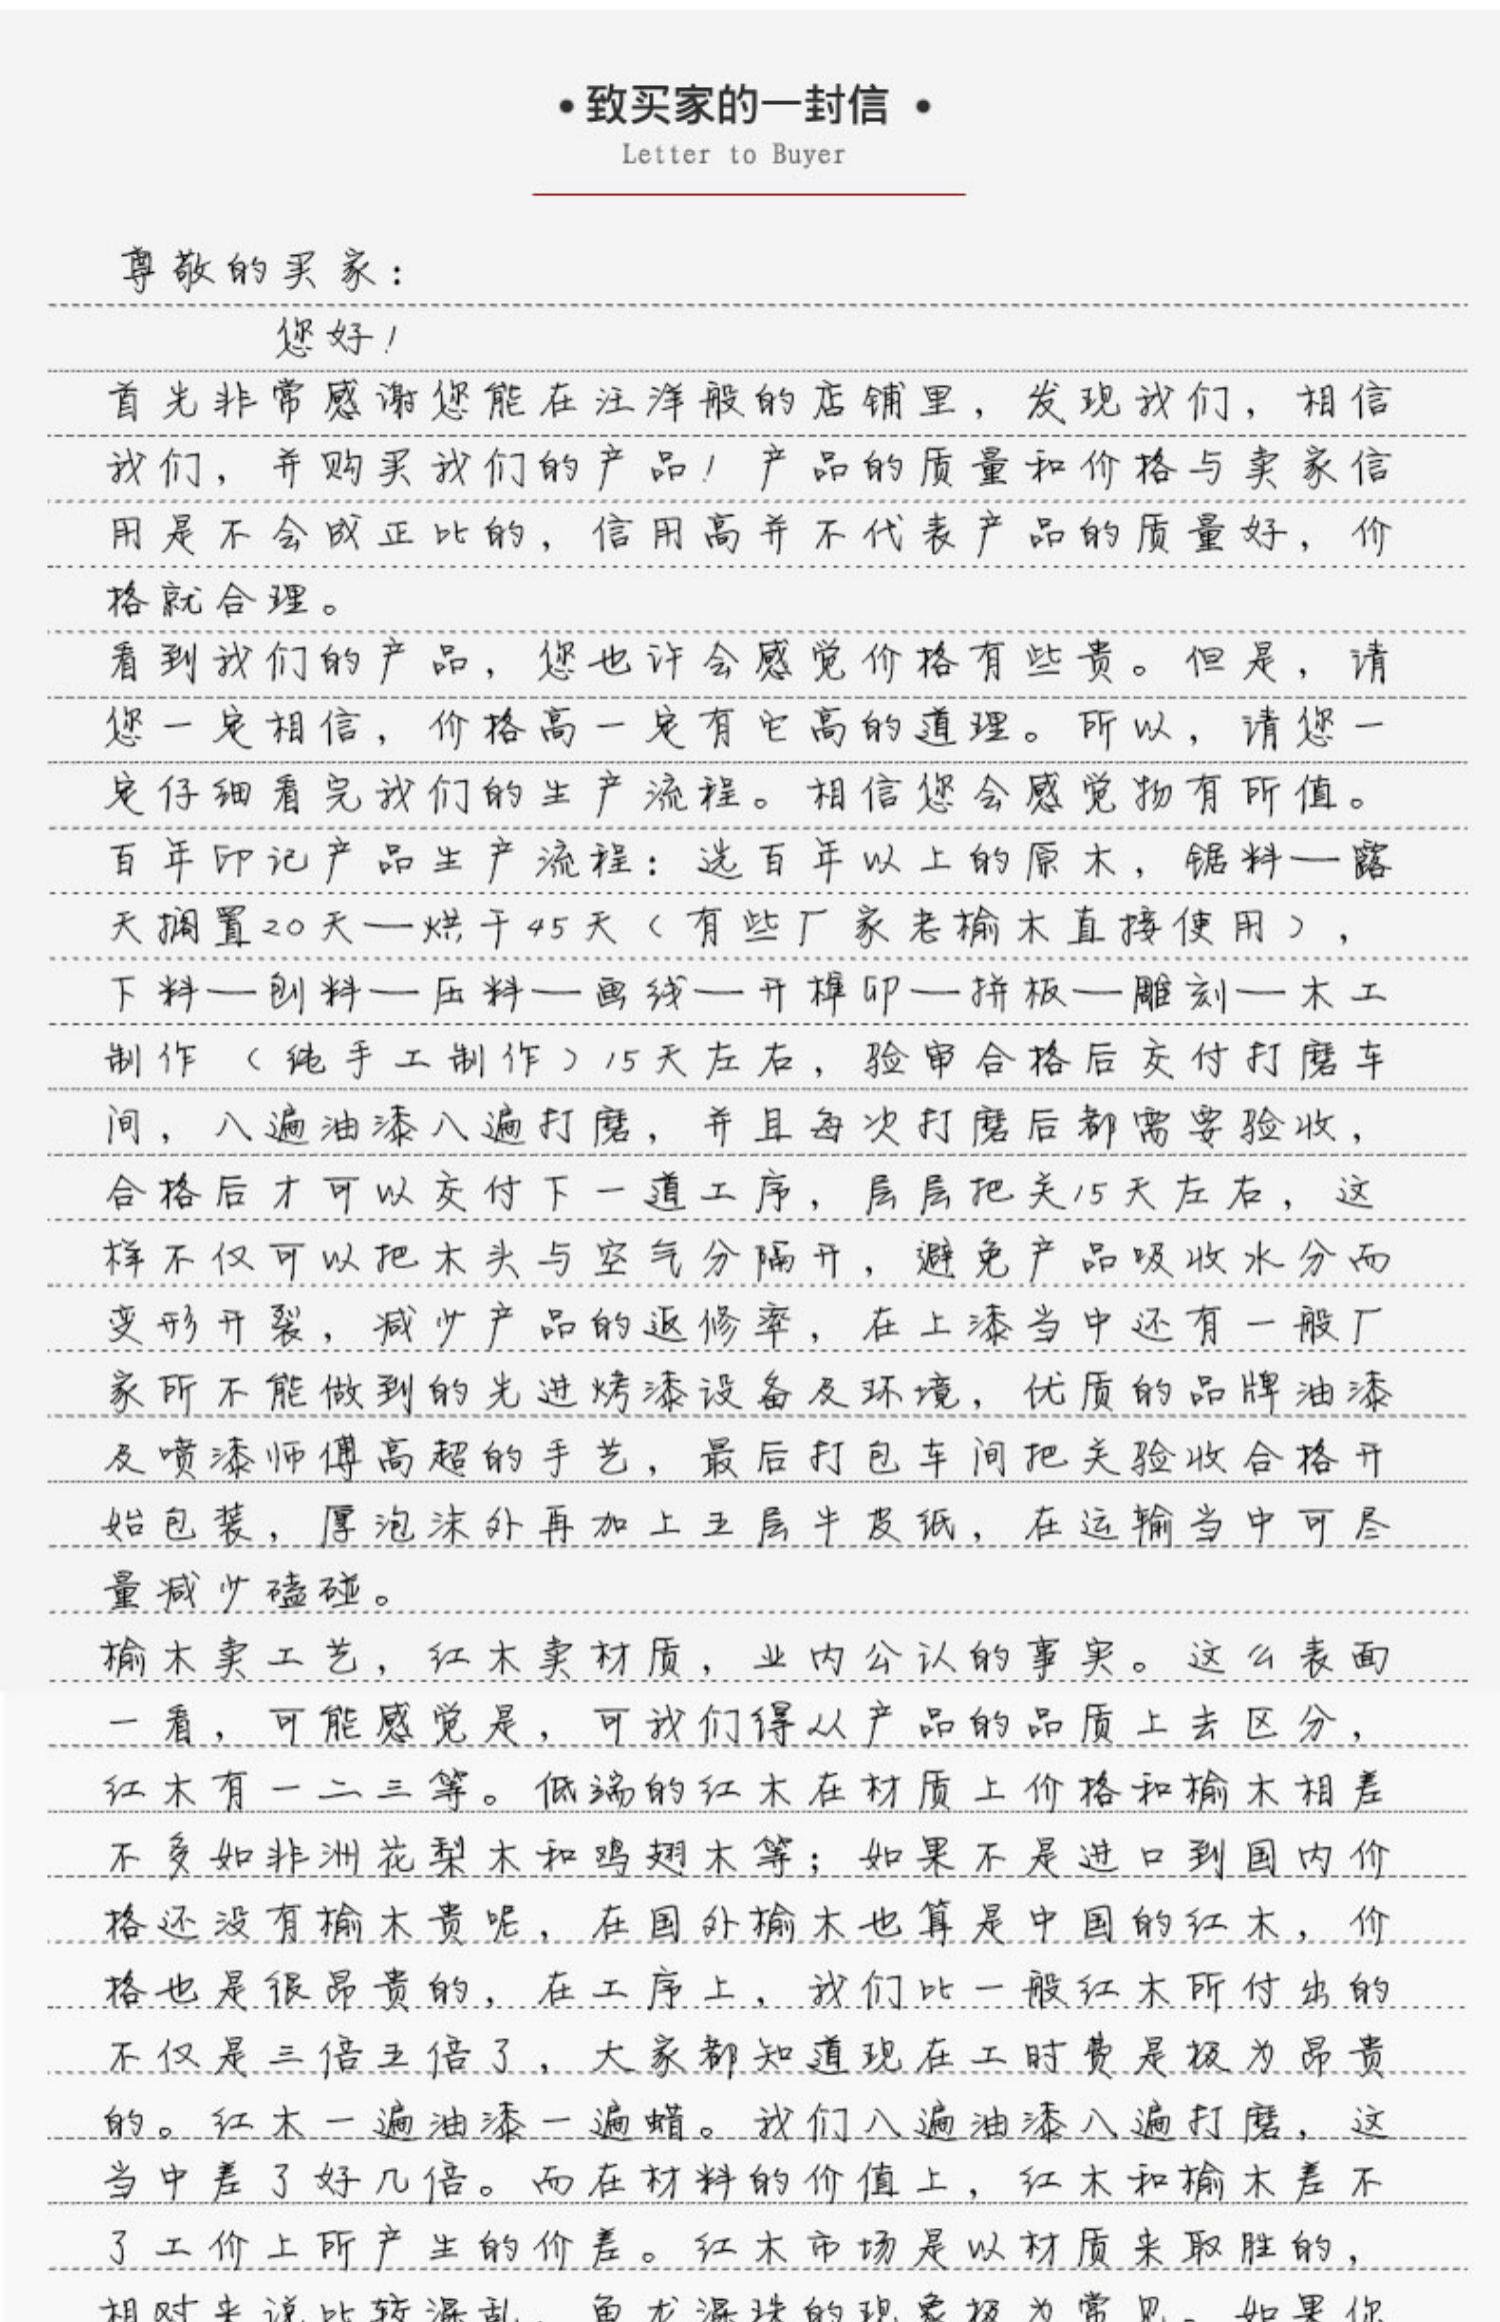 • 致买家的一封信 •
Letter to Buyer
尊敬的买家：
您好！
首先非常感谢您能在汪洋般的店铺里，发现我们，相信
我们，并购买我们的产品！产品的质量和价格与卖家信
用是不会成正比的，信用高并不代表产品的质量好，价
格就合理。
看到我们的产品，您也许会感觉价格有些贵。但是，请
您一定相信，价格高一定有它高的道理。所以，请您一
定仔细看完我们的生产流程。相信您会感觉物有所值。
百年印记产品生产流程：选百年以上的原木，锯料—露
天搁置20天—烘干45天（有些厂家老榆木直接使用），
下料—刨料—压料—画线—开榫卯—拼板—雕刻—木工
制作（纯手工制作）15天左右，验审合格后交付打磨车
间，八遍油漆八遍打磨，并且每次打磨后都需要验收，
合格后才可以交付下一道工序，层层把关15天左右，这
样不仅可以把木头与空气分隔开，避免产品吸收水分而
变形开裂，减少产品的返修率，在上漆当中还有一般厂
家所不能做到的先进烤漆设备及环境，优质的品牌油漆
及喷漆师傅高超的手艺，最后打包车间把关验收合格开
始包装，厚泡沫外再加上五层牛皮纸，在运输当中可尽
量减少磕碰。
榆木卖工艺，红木卖材质，业内公认的事实。这么表面
一看，可能感觉是，可我们得从产品的品质上去区分，
红木有一二三等。低端的红木在材质上价格和榆木相差
不多如非洲花梨木和鸡翅木等；如果不是进口到国内价
格还没有榆木贵呢，在国外榆木也算是中国的红木，价
格也是很昂贵的，在工序上，我们比一般红木所付出的
不仅是三倍五倍了，大家都知道现在工时费是极为昂贵
的。红木一遍油漆一遍蜡。我们八遍油漆八遍打磨，这
当中差了好几倍。而在材料的价值上，红木和榆木差不
了工价上所产生的价差。红木市场是以材质来取胜的，
相对来说比较混乱，鱼龙混珠的现象极为常见。如果您